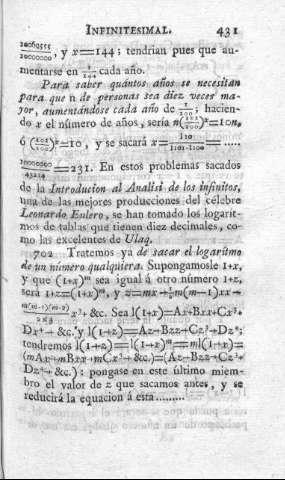 INFINITESIMAL. 431
20069555/20000000, y x=144; tendrian pues que au-
mentarse en 1/144 cada año.
Para saber quántos años se necesitan
para que n de personas sea diez veces ma-
yor, aumentándose cada año de 1/100; hacien-
do x el número de años, sería n(101/100)^x=10n,
ó (101/100)^x=10, y se sacará x= l10/l101-l100 = .....
10000000/43214 =231. En estos problemas sacados
de la Introducion al Analisi de los infinitos,
una de las mejores producciones del célebre
Leonardo Eulero, se han tomado los logarit-
mos de tablas que tienen diez decimales, co-
mo las excelentes de Ulaq.
702 Tratemos ya de sacar el logaritmo
de un número qualquiera. Supongamosle 1+x,
y que (1+x)^m sea igual á otro número 1+z,
será 1+z=(1+x)^m, y z=mx+½m(m-1)xx+
m(m-1)(m-2)/2×3 x³+ &c. Sea l(1+x)=Ax+Bxx+Cx³+
Dx⁴+ &c. y l(1+z)=Az+Bzz+Cz³+Dz⁴;
tendremos l(1+z)=l(1+x)^m=ml(1+x)=
(mAx+mBxx+mCx³+&c.)=(Az+Bzz+Cz³+
Dz⁴+&c.): pongase en este último miem-
bro el valor de z que sacamos antes, y se
reducirá la equacion á esta.........